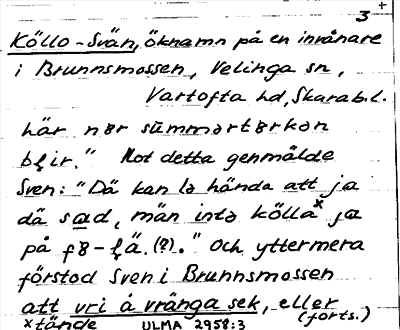 3 +
Köllo-Svän, öknamn på en invånare
i Brunnsmossen, Velinga sn,
Vartofta hd, Skarab.l.
här när sūmmərtərkən
blir." Mot detta genmälde
Sven: "Dä kan lə hända att ja
dä sad, män intə kölla x ja
på (?)." Och yttermera
förstod Sven i Brunnsmossen
att vri å vränga sek, eller
(forts.)
x tände ULMA 2958:3